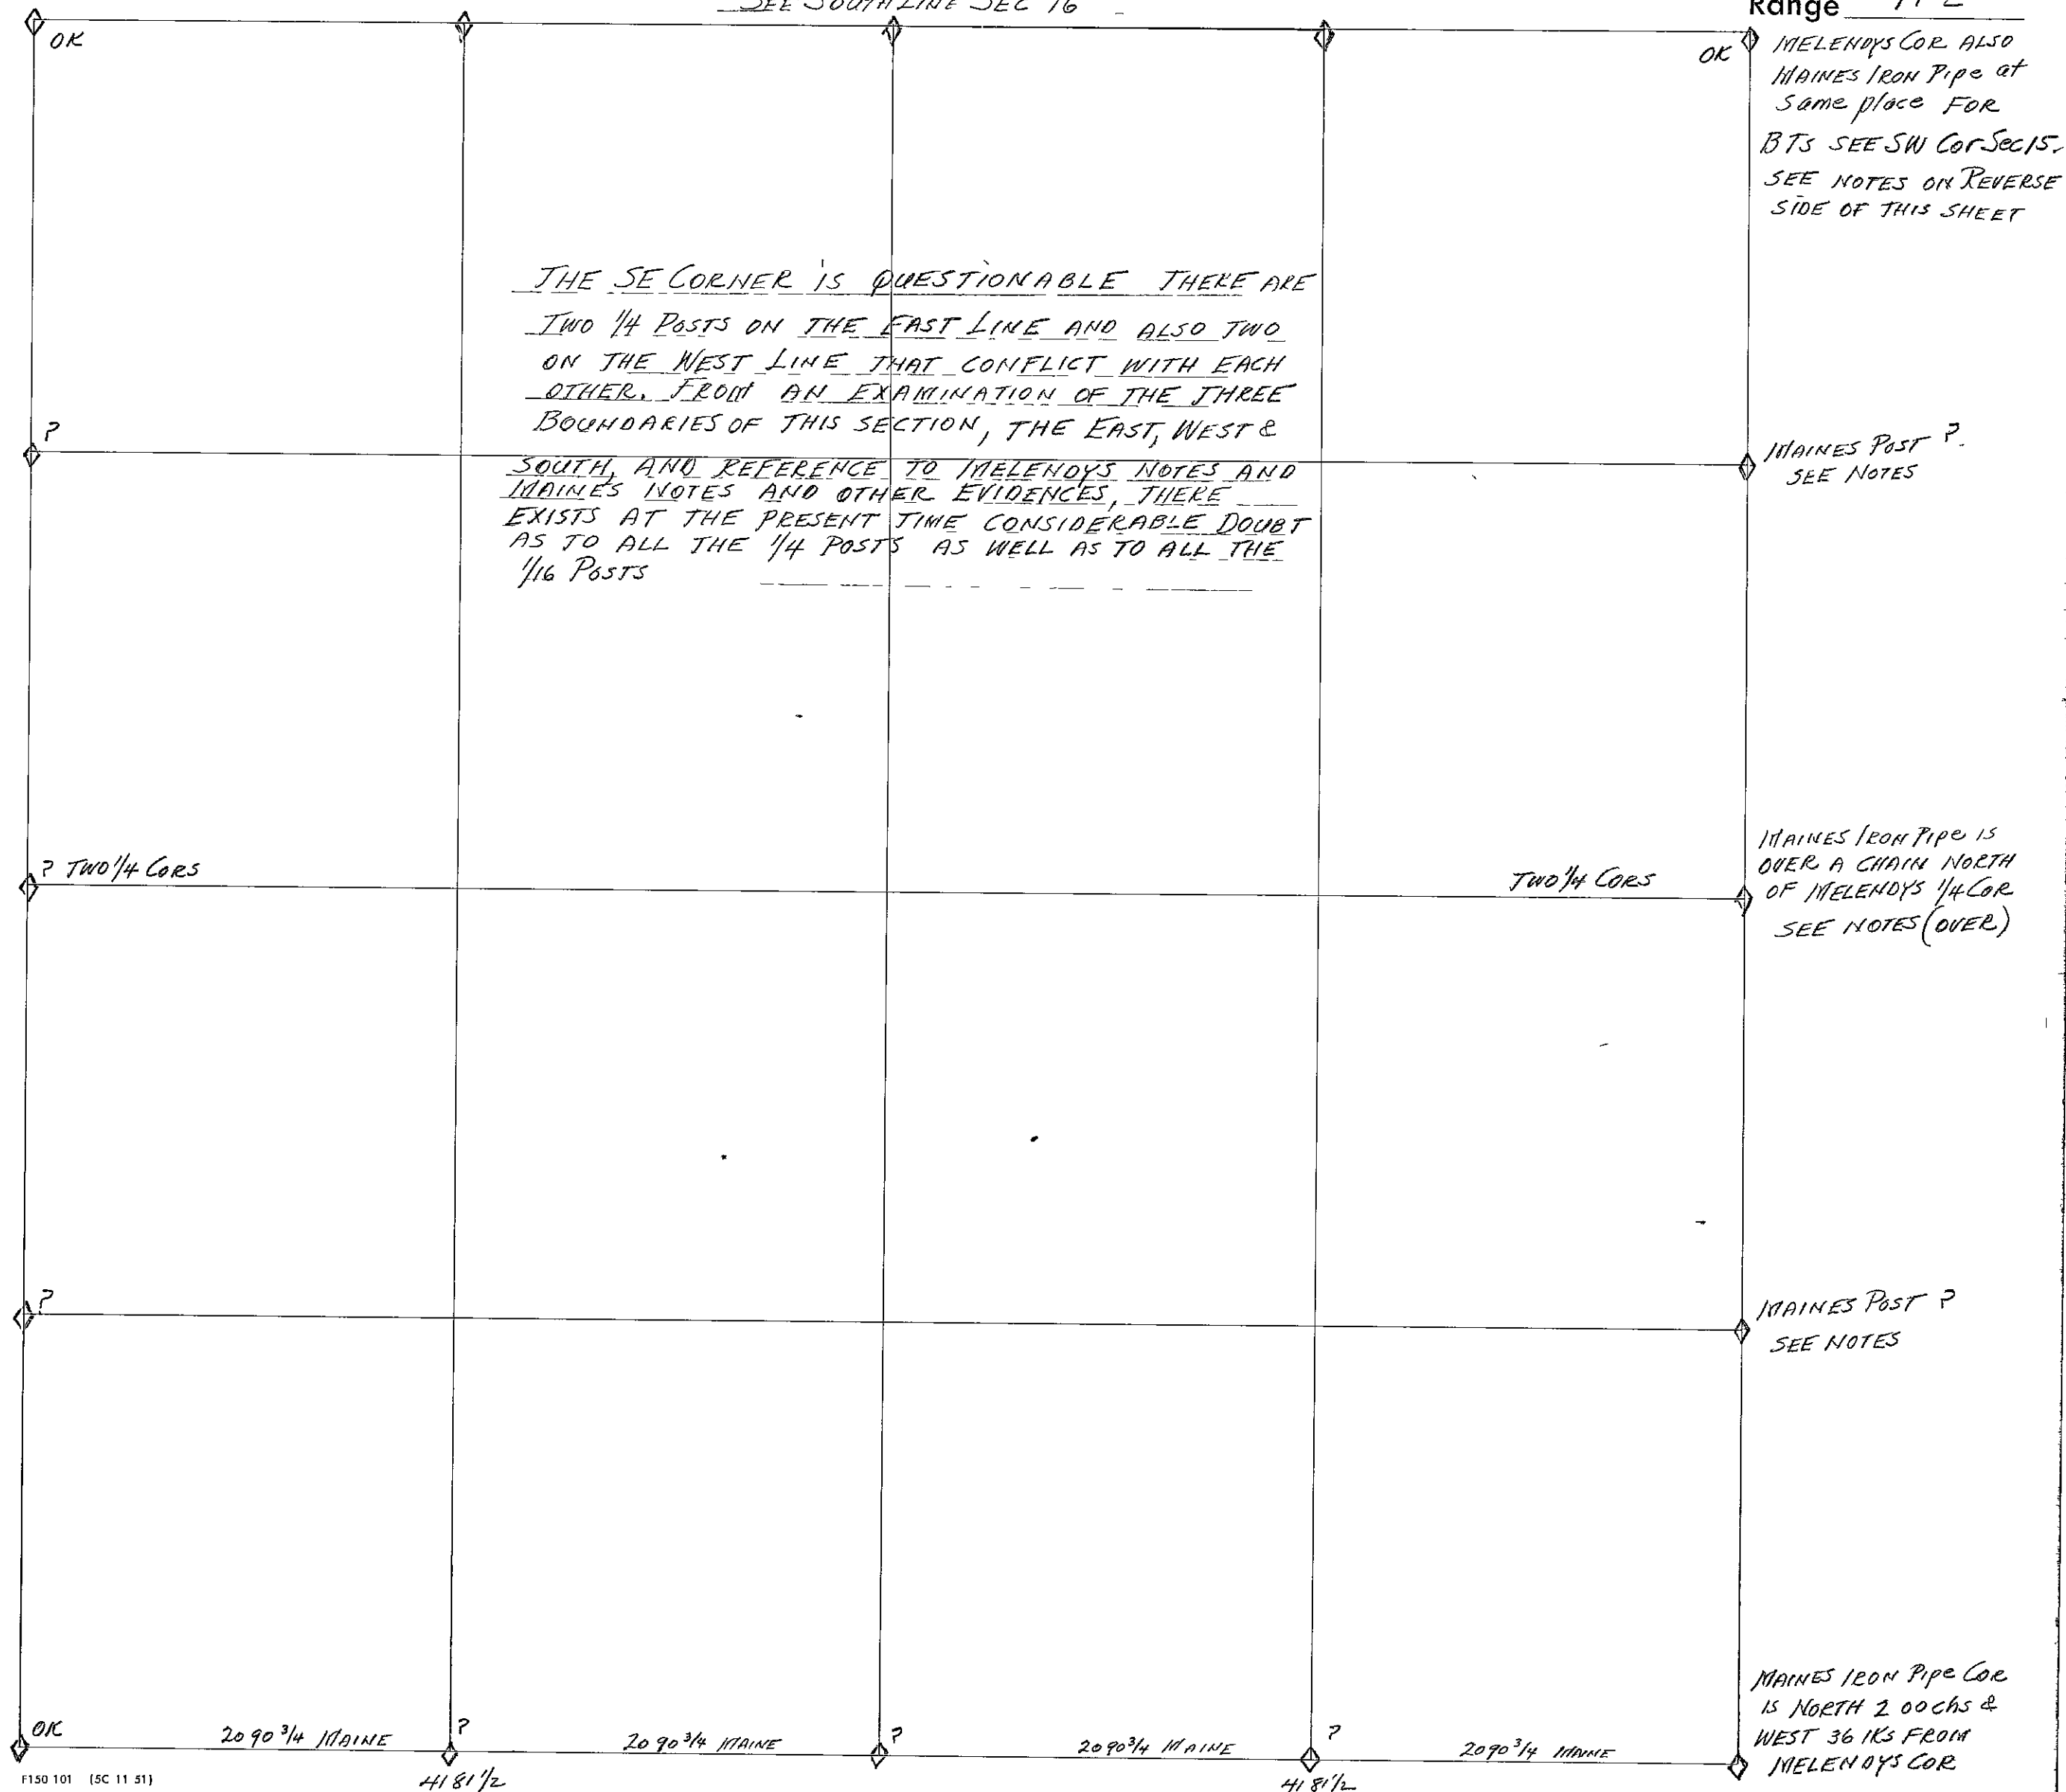 SEE SOUTH LINE SEC 16
Range
OK
OK
MELENDYS COR ALSO
MAINES IRON Pipe at
Same place FOR
BTs SEE SW Cor Sec 15.
SEE NOTES ON REVERSE
SIDE OF THIS SHEET
THE SE CORNER is QUESTIONABLE THERE ARE
TWO 1/4 POSTS ON THE EAST LINE AND ALSO TWO
ON THE WEST LINE THAT CONFLICT WITH EACH
OTHER. FROM AN EXAMINATION OF THE THREE
BOUNDARIES OF THIS SECTION, THE EAST, WEST &
SOUTH, AND REFERENCE TO MELENDYS NOTES AND
MAINES NOTES AND OTHER EVIDENCES, THERE
EXISTS AT THE PRESENT TIME CONSIDERABLE DOUBT
AS TO ALL THE 1/4 POSTS AS WELL AS TO ALL THE
1/16 POSTS
?
MAINES POST ?
SEE NOTES
? TWO 1/4 CORS
TWO 1/4 CORS
MAINES IRON PIPE IS
OVER A CHAIN NORTH
OF MELENDYS 1/4 COR
SEE NOTES (OVER)
?
MAINES POST ?
SEE NOTES
MAINES IRON Pipe COR
IS NORTH 2 00 chs &
WEST 36 lKs FROM
MELENDYS COR
OK
20 90 3/4 MAINE
?
20 90 3/4 MAINE
?
20 90 3/4 MAINE
?
20 90 3/4 MAINE
F150 101 (5C 11 51)
41 81 1/2
41 81 1/2